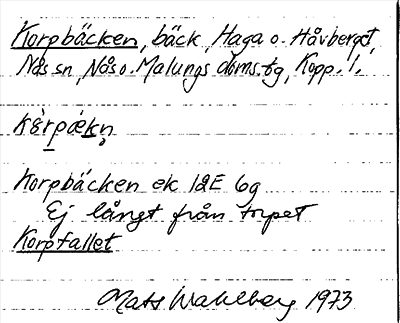 Korpbäcken, bäck, Haga o. Håvberget,
Nås sn, Nås o. Malungs doms.tg, Kopp. l.
kèrpǽkn̥
Korpbäcken ek 12E 6g
Ej långt från torpet
Korpfallet
Mats Wahlberg 1973